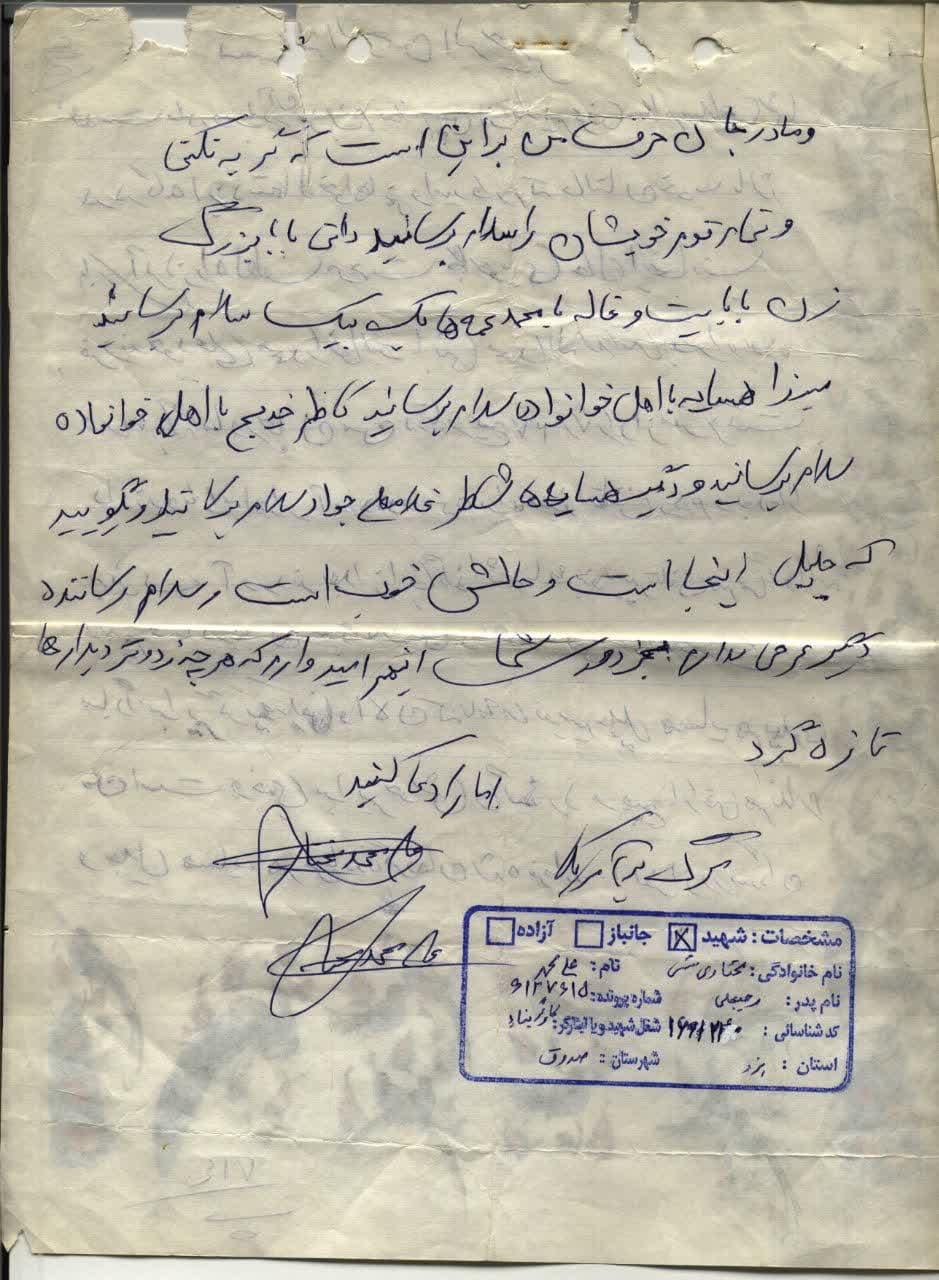 و مادر جان حرف من براین است که گریه نکنی
و تمام قوم خویشان را سلام برسانید دائی بابا بزرگ
زن بابایت و خاله با محمد عمه ها یک بیک سلام برسانید
میرزا همسایه با اهل خوانواده سلام برسانید کاظم خدیج با اهل خوانماده
سلام برسانید و دگر همسایه ها غلامعلی جواد سلام برسانید و بگویید
که جلیل اینجا است و حالش خوب است و سلام رسانده
دیگر عرضی ندارم بجز دوری شما انهم امید وارم که هر چه زودتر دیدارها
تازه گرد
ما را دعا کنید
مرگ بر آمریکا
علی محمد مختاری
علی محمد مختاری
مشخصات : شهید ☒ جانباز ☐ آزاده ☐
نام خانوادگی : مختاری نام : علی محمد
نام پدر : رجبعلی شماره پرونده : ۶۱۳۷۶۱۵
کد شناسائی : ۱۶۶۱۲۴۰ شغل شهید و یا ایثارگر :
استان : یزد شهرستان : صدوق